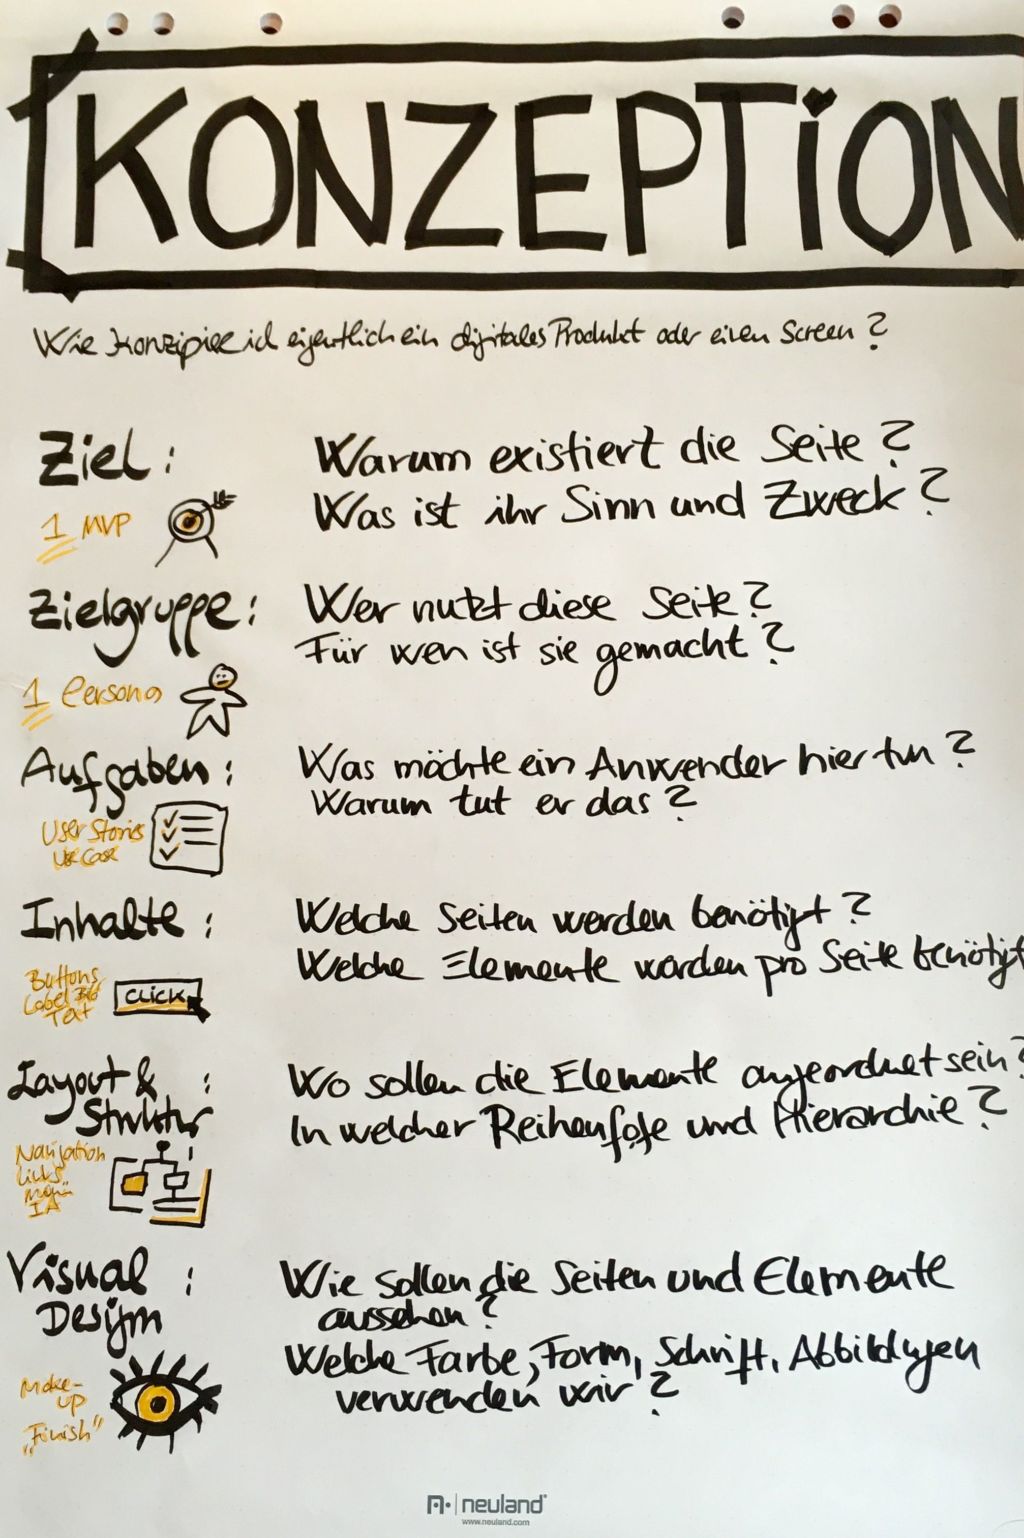 KONZEPTION
Wie konzipiere ich eigentlich ein digitales Produkt oder einen Screen?
Ziel:
Warum existiert die Seite?
Was ist ihr Sinn und Zweck?
1 MVP
Zielgruppe:
Wer nutzt diese Seite?
Für wen ist sie gemacht?
1 Persona
Aufgaben:
Was möchte ein Anwender hier tun?
Warum tut er das?
User Stories
Use Case
Inhalte:
Welche Seiten werden benötigt?
Welche Elemente werden pro Seite benötigt
Buttons
Label Bild
Text
CLICK
Layout &
Struktur:
Wo sollen die Elemente angeordnet sein?
In welcher Reihenfolge und Hierarchie?
Navigation
Links
Menü
IA
Visual
Design:
Wie sollen die Seiten und Elemente
aussehen?
Welche Farbe, Form, Schrift, Abbildungen
verwenden wir?
Make-
up
„Finish"
neuland
www.neuland.com